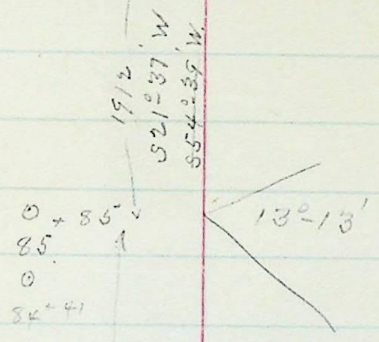 1912
S21°-37' W
S54°-39' W.
⊙ + 85
85
⊙
84-41
13°-13'